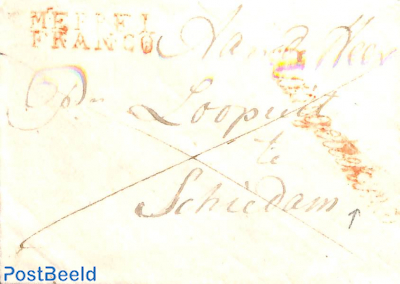 MEPPEL
FRANCO
Aan de Heer
Loopuit
te
Schiedam
PostBeeld